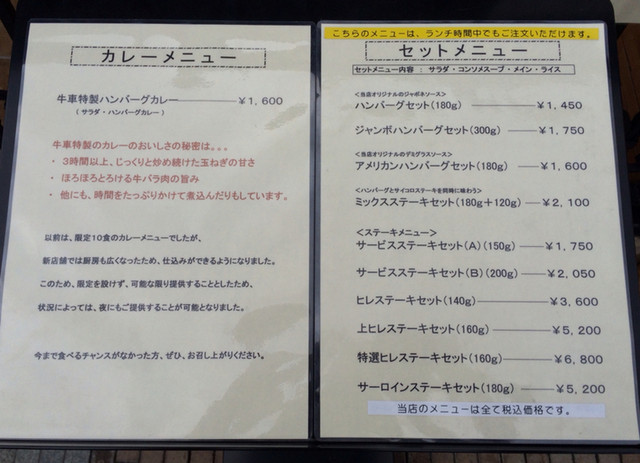 カレーメニュー
牛車特製ハンバーグカレー ¥1,600
(サラダ・ハンバーグカレー)
牛車特製のカレーのおいしさの秘密は。。。
・3時間以上、じっくりと炒め続けた玉ねぎの甘さ
・ほろほろとろける牛バラ肉の旨み
・他にも、時間をたっぷりかけて煮込んだりもしています。
以前は、限定10食のカレーメニューでしたが、
新店舗では厨房も広くなったため、仕込みができるようになりました。
このため、限定を設けず、可能な限り提供することとしたため、
状況によっては、夜にもご提供することが可能となりました。
今まで食べるチャンスがなかった方、ぜひ、お召し上がりください。
こちらのメニューは、ランチ時間中でもご注文いただけます。
セットメニュー
セットメニュー内容 : サラダ・コンソメスープ・メイン・ライス
<当店オリジナルのジャポネソース>
ハンバーグセット(180g) ¥1,450
ジャンボハンバーグセット(300g) ¥1,750
<当店オリジナルのデミグラスソース>
アメリカンハンバーグセット(180g) ¥1,600
<ハンバーグとサイコロステーキを同時に味わう>
ミックスステーキセット(180g+120g) ¥2,100
<ステーキメニュー>
サービスステーキセット(A)(150g) ¥1,750
サービスステーキセット(B)(200g) ¥2,050
ヒレステーキセット(140g) ¥3,600
上ヒレステーキセット(160g) ¥5,200
特選ヒレステーキセット(160g) ¥6,800
サーロインステーキセット(180g) ¥5,200
当店のメニューは全て税込価格です。